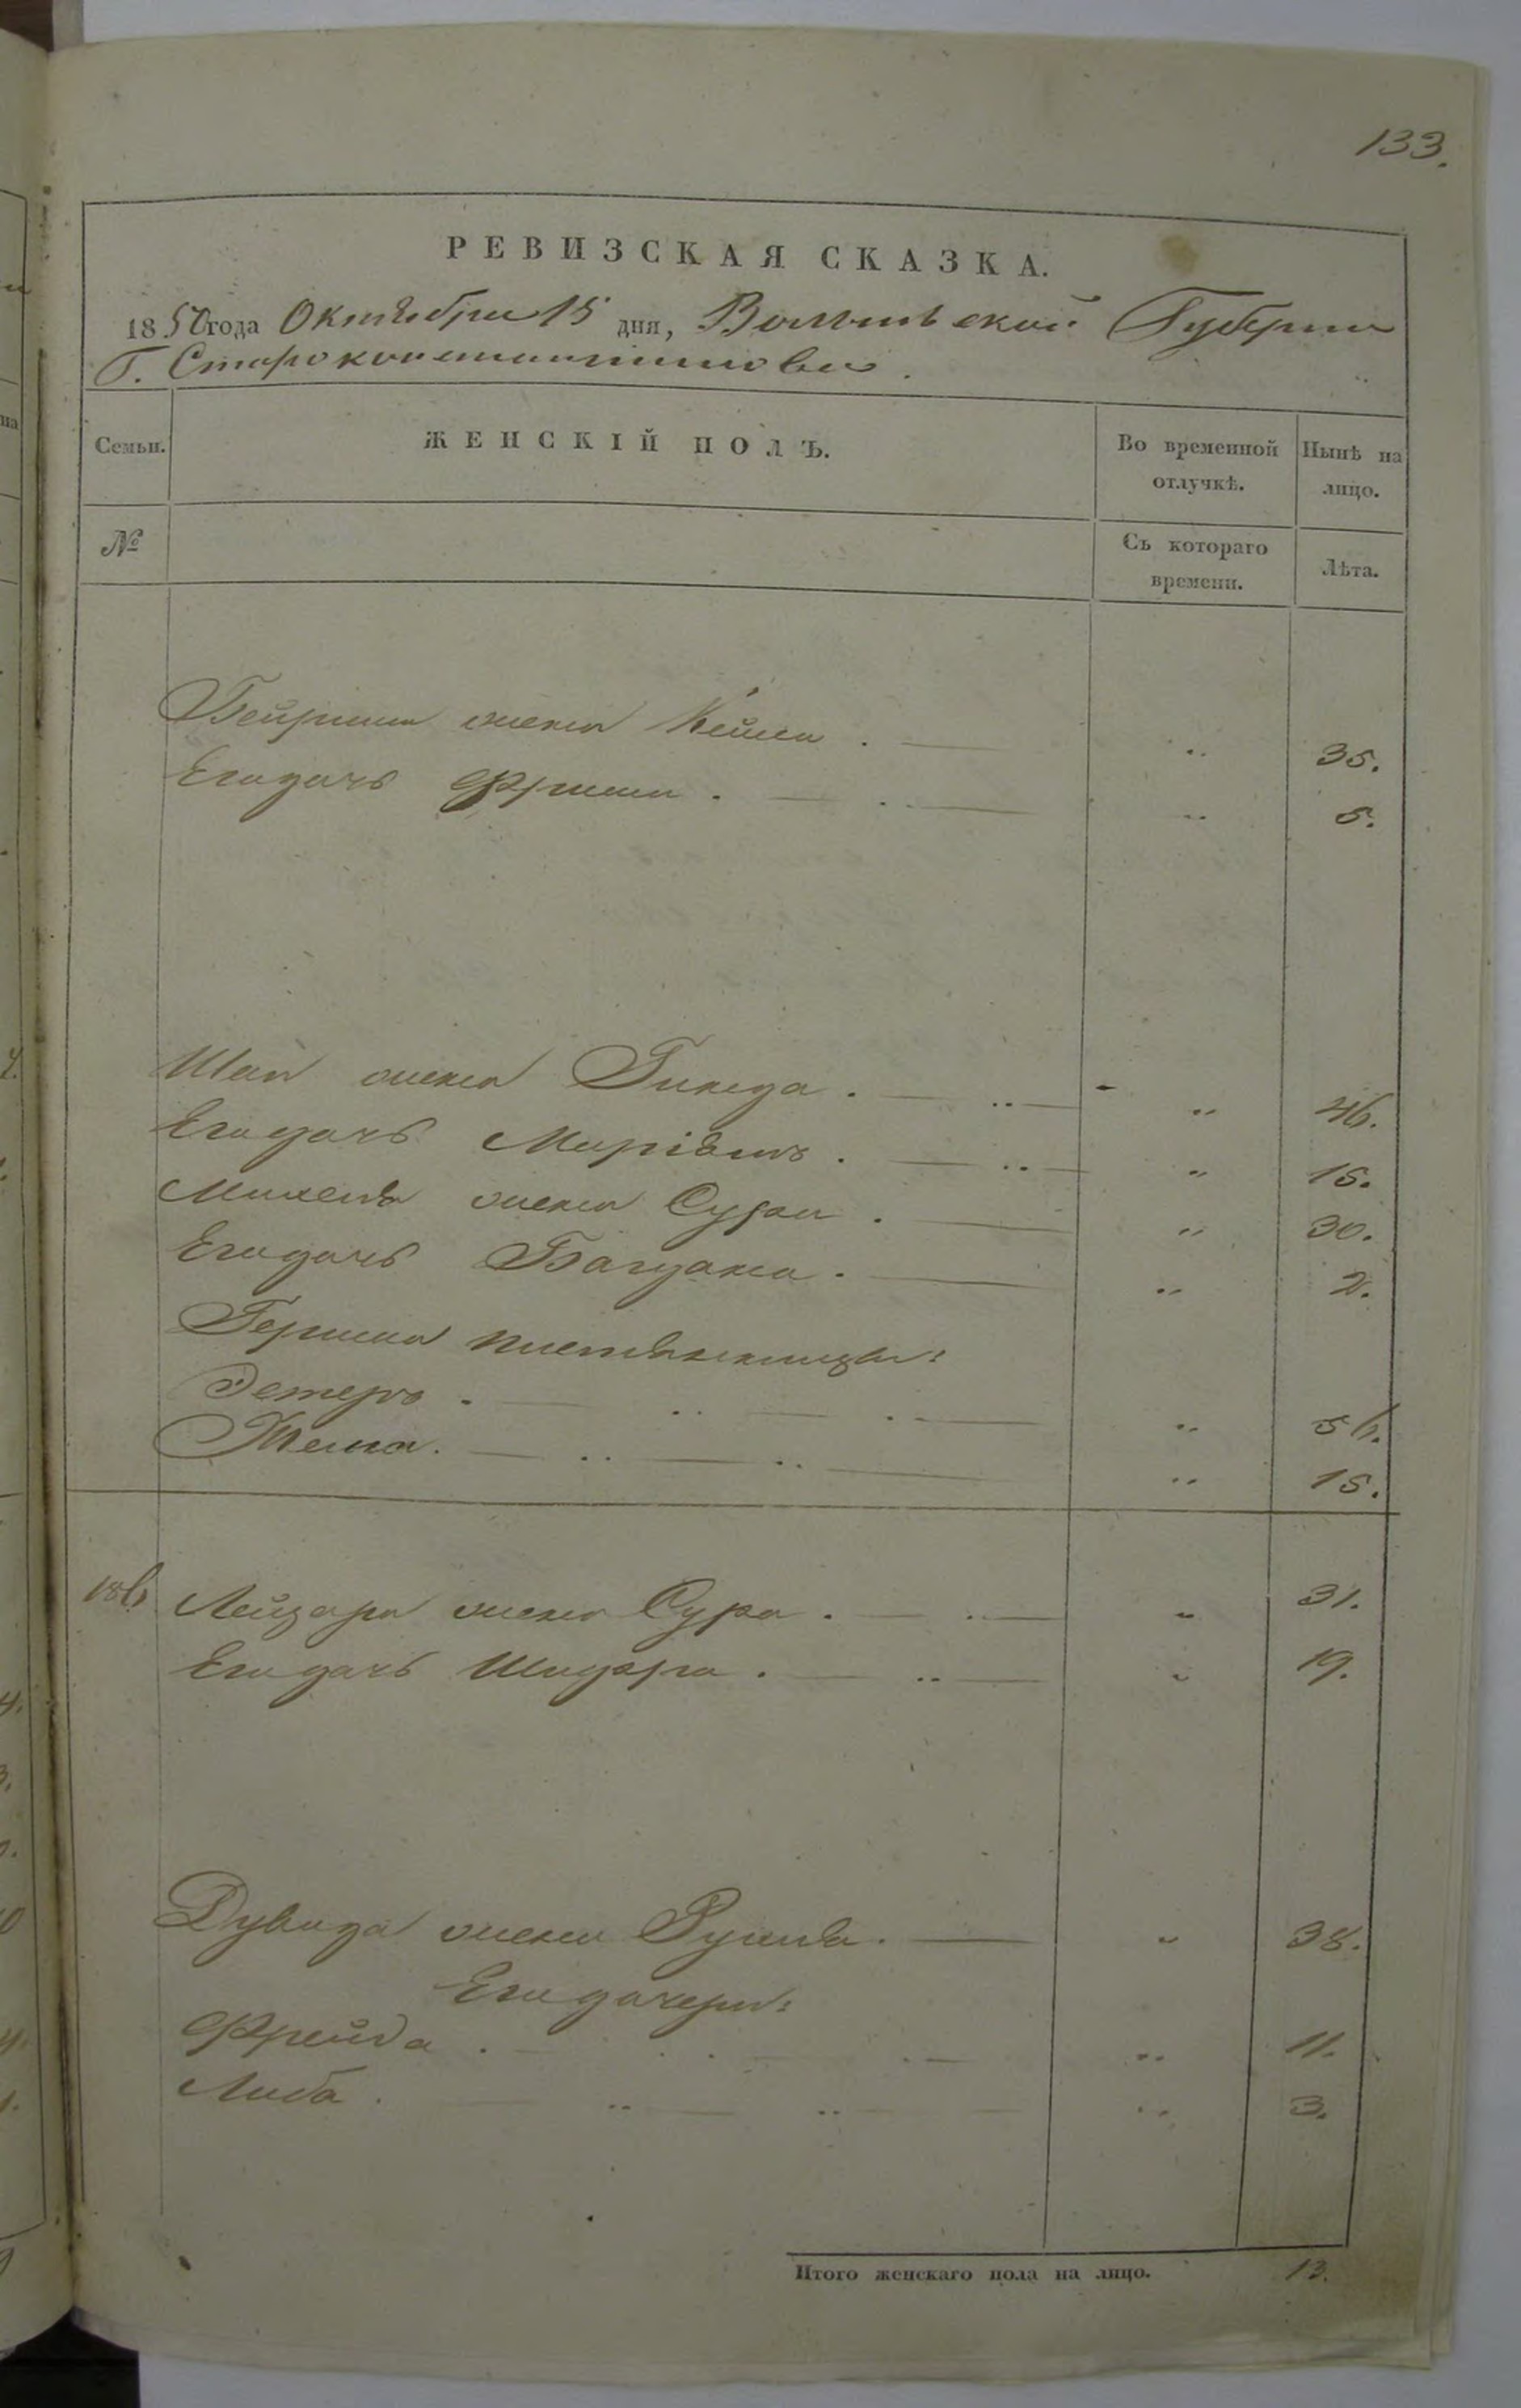 133.
РЕВИЗСКАЯ СКАЗКА.
1850 года Октября 15 дня, Волынской Губернии
Г. Староконстантинова.
Семьи. ЖЕНСКІЙ ПОЛЪ. Во временной отлучкѣ. Нынѣ на лицо.
№ Съ котораго времени. Лѣта.
жена Кейла . „ 35.
Его дочь Фрима . „ 5.
жена Гинда . „ 46.
Его дочь Маріямъ . „ 15.
жена Сура . „ 30.
Его дочь Багдана . „ 2.
Гершка племянницы:
Эстеръ . „ 56.
„ 15.
186 Лейзара жена Сура . „ 31.
Его дочь Шифра . „ 19.
Дувида жена Рухля . „ 38.
Его дочери:
Фрейда . „ 11.
Либа . „ 3.
Итого женскаго пола на лицо. 13.